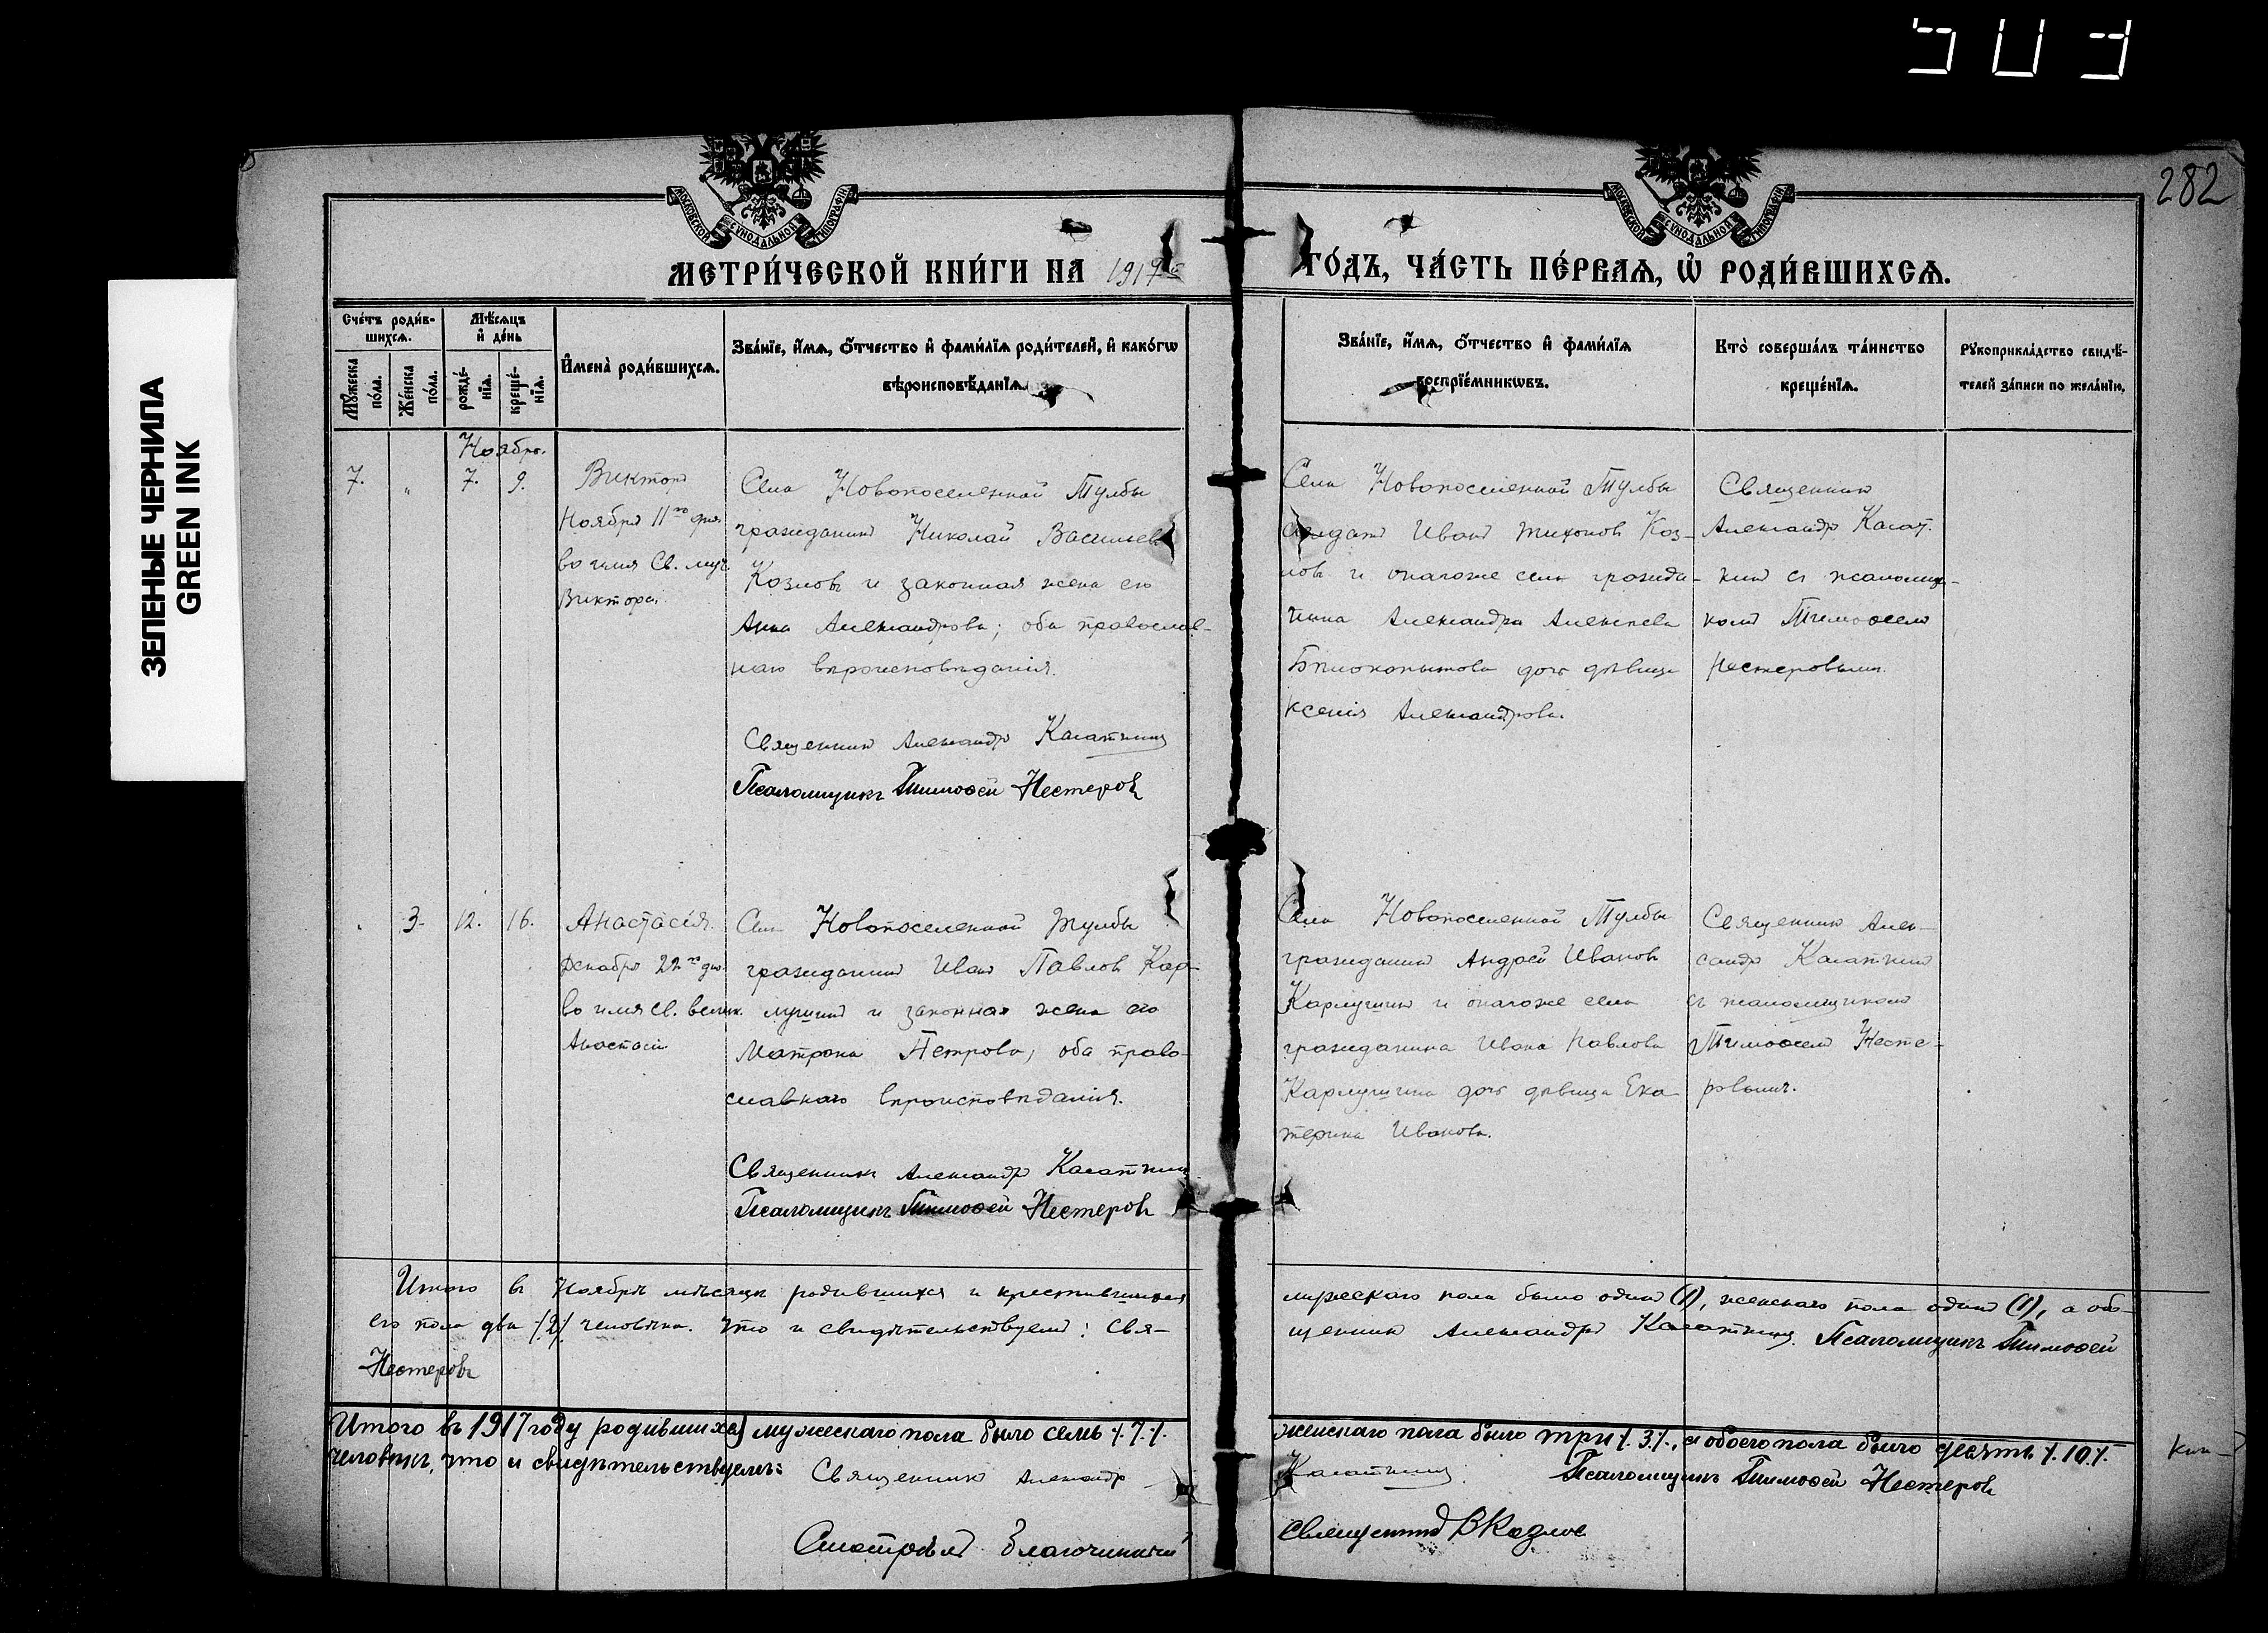 503
282
ЗЕЛЕНЫЕ ЧЕРНИЛА
GREEN INK
МОСКОВСКОЙ СѴНОДАЛЬНОЙ ТИПОГРАФІИ
МОСКОВСКОЙ СѴНОДАЛЬНОЙ ТИПОГРАФІИ
МЕТРИ́ЧЕСКОЙ КНИ́ГИ НА 1917й
ГО́ДЪ, ЧА́СТЬ ПЕ́РВАѦ, Ѿ РОДИ́ВШИХСѦ.
Сче́тъ роди́в-
шихсѧ.
Мꙋ́жеска
по́ла.
Же́нска
по́ла.
Мѣ́сѧцъ
и҆ де́нь
рожде́-
нїѧ.
креще́-
нїѧ.
И҆мена̀ роди́вшихсѧ.
Зва́нїе, и҆́мѧ, ѻ҆́тчество и҆ фами́лїѧ роди́телей, и҆ како́гѡ
вѣроисповѣ́данїѧ.
Зва́нїе, и҆́мѧ, ѻ҆́тчество и҆ фами́лїѧ
воспрїе́мникѡвъ.
Кто̀ соверша́лъ та́инство
креще́нїѧ.
Рꙋкоприкла́дство свидѣ́-
телей за́писи по жела́нїю.
Ноябрь.
7. " 7. 9.
Викторъ
Ноября 11го дня
во имя Св. муч.
Виктора.
Села Новопоселенной Тулбы
гражданинъ Николай Васильевъ
Козловъ и законная жена его
Анна Александрова; оба православ-
наго вѣроисповѣданія.
Священникъ Александръ Касаткинъ
Псаломщикъ Тимоѳей Нестеровъ
Села Новопоселенной Тулбы
солдатъ Иванъ Тихоновъ Коз-
ловъ и онагоже села гражда-
нина Александра Алексѣева
Бѣлокопытова дочь дѣвица
Ксенія Александрова.
Священникъ
Александръ Касат-
кинъ съ псаломщи-
комъ Тимоѳеемъ
Нестеровымъ.
3. 12. 16.
Анастасія.
Декабря 22го дня
во имя св. велик.
Анастасіи
Села Новопоселенной Тулбы
гражданинъ Иванъ Павловъ Кар-
мушинъ и законная жена его
Матрона Петрова; оба право-
славнаго вѣроисповѣданія.
Священникъ Александръ Касаткинъ
Псаломщикъ Тимоѳей Нестеровъ
Села Новопоселенной Тулбы
гражданинъ Андрей Ивановъ
Кармушинъ и онагоже села
гражданина Ивана Павлова
Кармушина дочь дѣвица Ека-
терина Иванова.
Священникъ Алек-
сандръ Касаткинъ
съ псаломщикомъ
Тимоѳеемъ Несте-
ровымъ.
Итого въ Ноябрѣ мѣсяцѣ родившихся и крестившихся мужескаго пола было одинъ (1), женскаго пола одинъ (1), а обо-
его пола два /2/ человѣка. Что и свидѣтельствуемъ: Свя-щенникъ Александръ Касаткинъ. Псаломщикъ Тимоѳей
Нестеровъ
Итого въ 1917 году родившихся мужескаго пола было семь /.7./. женскаго пола было три /.3./., а обоего пола было десять /.10./.
человѣкъ, что и свидѣтельствуемъ: Священникъ Александръ Касаткинъ. Псаломщикъ Тимоѳей Нестеровъ
Смотрѣлъ Благочинный священникъ В Козлов